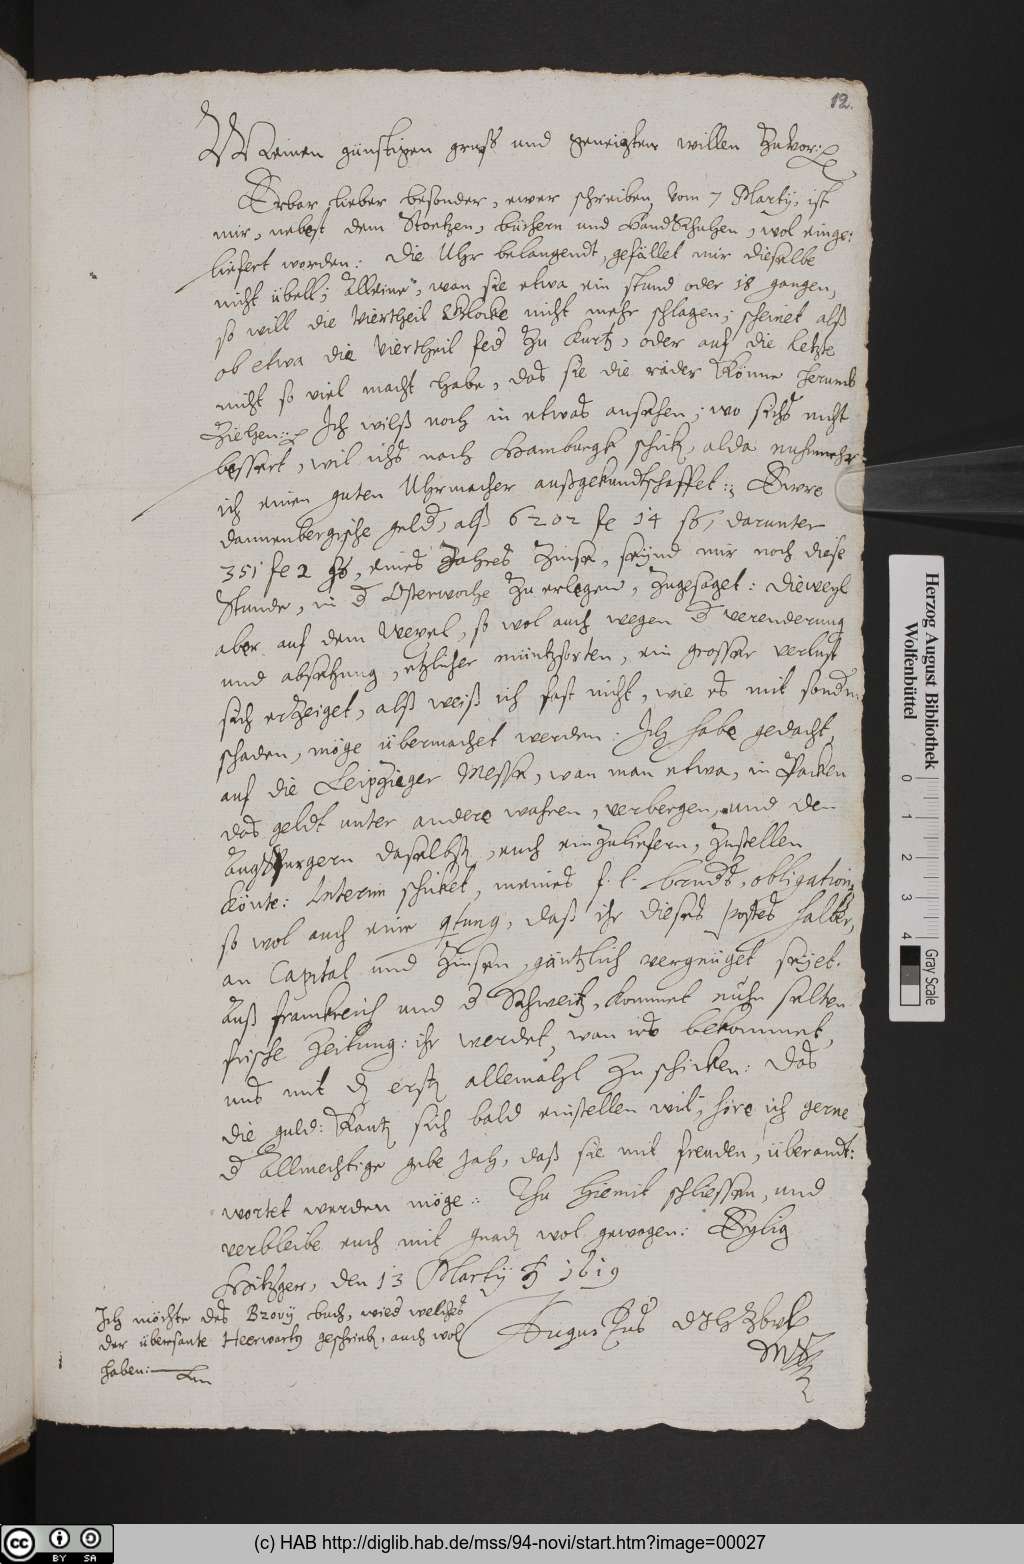 12.
Meinen günstigen gruß und geneigten willen zuvor:
Erbar lieber besonder, ewer schreiben vom 7 Martij, ist
mir, nebest dem Stoetzen, büchern und handschuhen, wol einge:
liefert worden: Die Uhr belangendt, gefället mir dieselbe
nicht übell; Alleine, wan sie etwa ein stund oder 18 gangen,
so will die viertheil Glocke nicht mehr schlagen; scheinet alß
ob etwa die viertheil fed zu kurtz, oder auf die letzte
nicht so viel macht habe, das sie die räder könne herumb
ziehen: Ich wilß noch in etwas ansehen; wo sichs nicht
bessert, wil ichs nach Hamburgk schick, alda nuhnmehr
ich einen guten Uhrmacher außgekundtschaffet: Ewre
dannenbergische geld, alß 6202 fl 14 ß, darunter
351 fl 2 ß, eines Jahres Zinse, seynd mir noch diese
Stunde, in d Osterwoche zu erlegend, zugesaget: dieweyl
aber auf dem Wexel, so wol auch wegen d verenderung
und absetzung, etzlicher müntzsorten, ein grosser verlust
sich erzeiget, alß weiß ich fast nicht, wie es mit sondn
schaden, möge übermachet werden: Ich habe gedacht,
auf die Leipziger Messe, wan man etwa, in Packen
das geldt unter andere wahren, verbergen, und den
Augspurgern daselbst, euch einzuliefern, zustellen
könte: Interim schicket, meines f. l. bruds, obligation,
so wol auch eine qtung, daß ihr dieses postes halber,
an Capital und Zinsen, gäntzlich vergnüget seyet.
Auß franckreich und d Schweitz, kommet nuhn selten
frische Zeitung: ihr werdet, wan irs bekommet,
uns mit d erst allemahl zu schicken: Das
die guld: Kantz sich bald einstellen wil, höre ich gerne
d Allmechtige gebe jah, daß sie mit freuden, überandt:
wortet werden möge: Thu hiemit schliessen, und
verbleibe euch mit gnad wol gewogen: Eylig
Hitzger, den 13 Martij 1619
Ich möchte des Brovij buch, wied welches
der übersante Heerwartz geschrieb, auch wol
haben:
Augustus dJHZBuL
Herzog August Bibliothek
Wolfenbüttel
0 1 2 3 4
Gray Scale
cc BY SA
(c) HAB http://diglib.hab.de/mss/94-novi/start.htm?image=00027